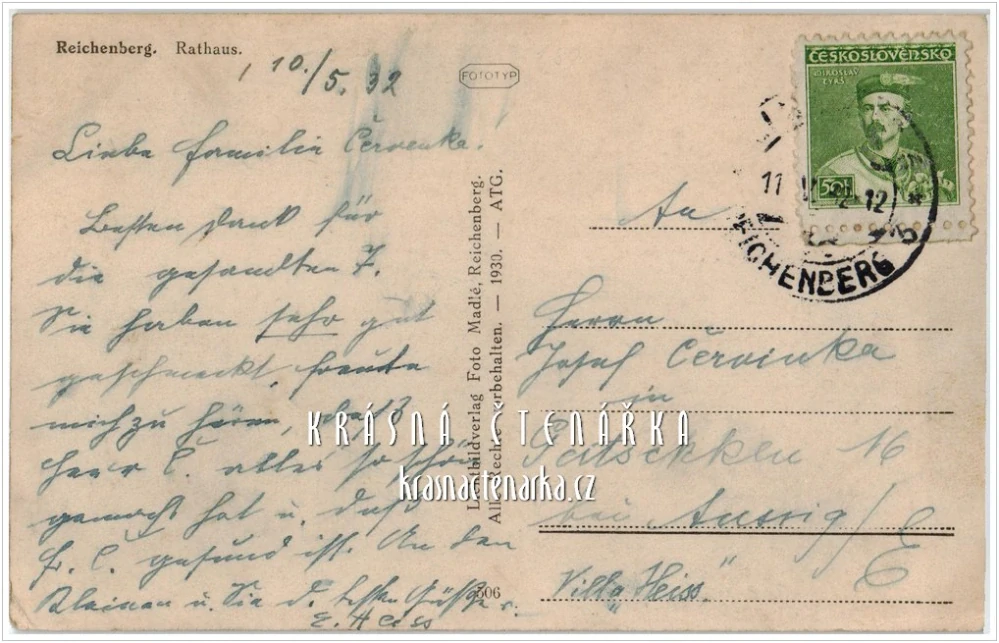 Reichenberg. Rathaus.
10./5.32
FOTOTYP
Liebe Familie Červenka!
Besten Dank für
die gesandten 7.
Sie haben sehr gut
geschmeckt, freute
mich zu hören, daß
Herr C. alles so schön
gemacht hat u. daß
Fr. C. gesund ist. An den
Kleinen u. Sie d. besten Grüße v.
E. Heiss
Lichtbildverlag Foto Madlé, Reichenberg.
Alle Rechte vorbehalten. — 1930. — ATG.
506
ČESKOSLOVENSKO
MIROSLAV
TYRŠ
50h
11 12
REICHENBERG
An
Herrn
Josef Červinka
in
16
bei Aussig/E
Villa „Heiss"
KRÁSNÁ ČTENÁŘKA
krasnactenarka.cz